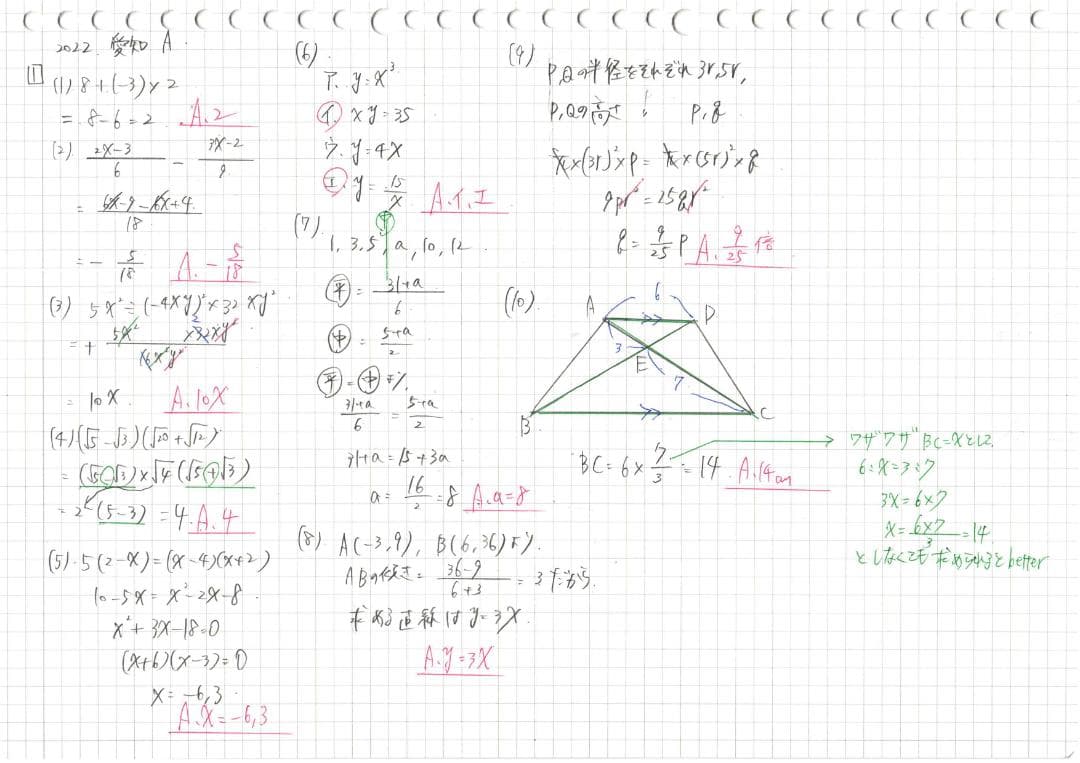 2022. 愛知 A
1
(1) 8+(-3)×2
= 8-6=2 A.2
(2) 2x-3/6 - 3x-2/9
= 6x-9-6x+4/18
= -5/18 A.-5/18
(3) 5x²÷(-4xy)²×32xy²
= + 5x² ×32xy²/16x²y² 2
= 10x. A.10x
(4) (√5-√3)(√20+√12)
= (√5-√3)×√4(√5+√3)
= 2(5-3) =4. A.4
(5). 5(2-x)=(x-4)(x+2)
10-5x=x²-2x-8
x²+3x-18=0
(x+6)(x-3)=0
x=-6,3
A.x=-6,3
(6).
ア. y=x³
イ. xy=35
ウ. y=4x
エ. y=15/x A.イ.エ
(7). 中
1, 3, 5, a, 10, 12.
平 = 31+a/6
中 = 5+a/2
平=中より
31+a/6 = 5+a/2
31+a=15+3a
a= 16/2 =8 A.a=8
(8) A(-3,9), B(6,36)より.
ABの傾き= 36-9/6+3 = 3だから.
求める直線はy=3x.
A.y=3x
(9)
P,Qの半径をそれぞれ3r,5r,
P,Qの高さ 〃 p,q
π×(3r)²×p=π×(5r)²×q
9pr²=25qr²
q= 9/25 p A. 9/25倍
(10).
A 6 D
3 E
7
B C
BC=6× 7/3 =14. A.14cm
ワザワザBC=xとして
6:x=3:7
3x=6×7
x= 6×7/3 =14.
としなくても求められるとbetter